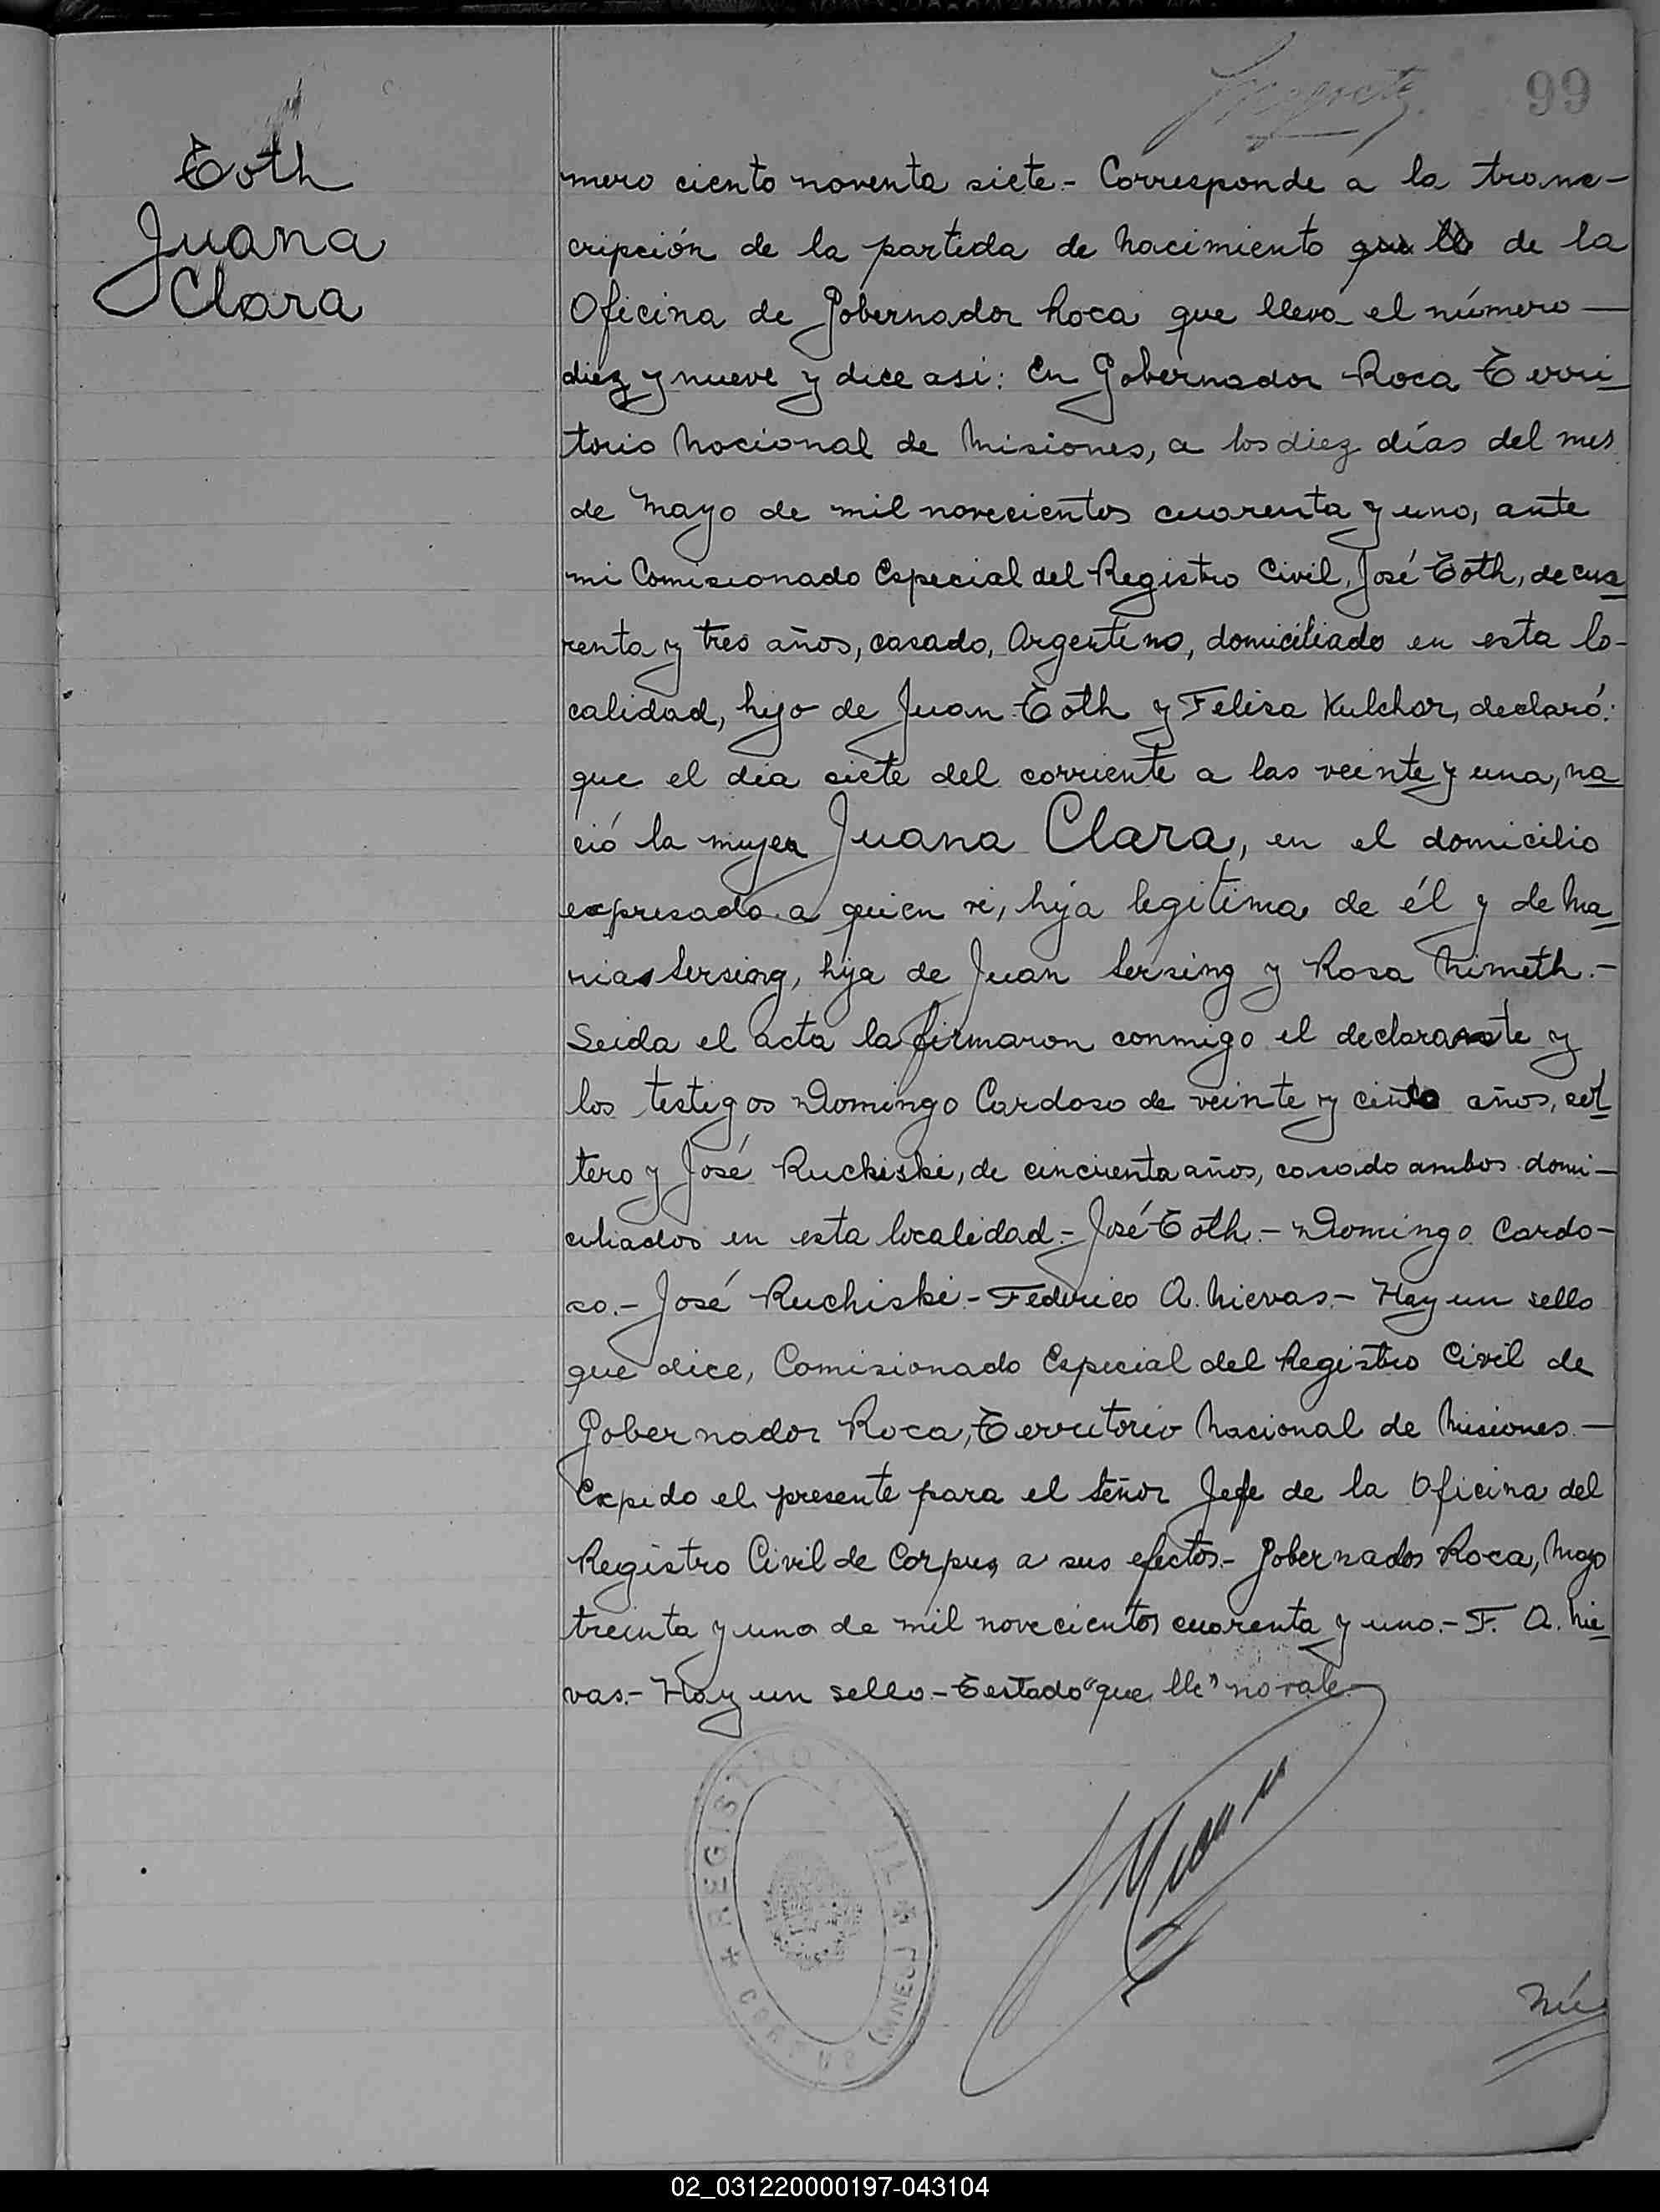 99
Toth
Juana
Clara
mero ciento noventa siete.- Corresponde a la trans-
cripción de la partida de Nacimiento que lle de la
Oficina de Gobernador Roca que lleva el número —
diez y nueve y dice asi: En Gobernador Roca Terri-
torio Nacional de Misiones, a los diez días del mes
de Mayo de mil novecientos cuarenta y uno, ante
mi Comisionado Especial del Registro Civil, José Toth, de cua-
renta y tres años, casado, Argentino, domiciliado en esta lo-
calidad, hijo de Juan Toth y Felisa Kulchar, declaró:
que el día siete del corriente a las veinte y una, na-
ció la mujer Juana Clara, en el domicilio
expresado a quien vi, hija legitima de él y de Ma-
ria Sersing, hija de Juan Sersing y Rosa Nimeth.-
Leida el acta la firmaron conmigo el declarante y
los testigos Domingo Cardoso de veinte y cinco años, sol-
tero y José Ruchiski, de cincuenta años, casado ambos domi-
ciliados en esta localidad.- José Toth.- Domingo Cardo-
so.- José Ruchiski.- Federico A. Nievas.- Hay un sello
que dice, Comisionado Especial del Registro Civil de
Gobernador Roca, Territorio Nacional de Misiones.—
Expido el presente para el Señor Jefe de la Oficina del
Registro Civil de Corpus, a sus efectos.- Gobernador Roca, Mayo
treinta y uno de mil novecientos cuarenta y uno.- F. A. Nie-
vas.- Hay un sello.- Testado "que lle" no vale.-
* REGISTRO CIVIL *
CORPUS (MNES)
Nú
02_031220000197-043104